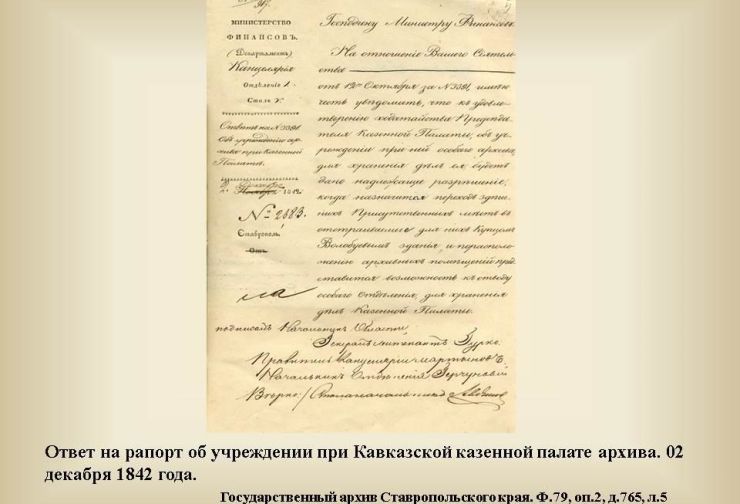 МИНИСТЕРСТВО
ФИНАНСОВЪ.
(Департаментъ)
Канцелярія
Отдѣленіе 1.
Столъ
Отвѣтъ на № 3381.
Объ учрежденіи ар-
хива при Казенной
Палатѣ.
Декабря
2. Ноября 1842
№ 2883.
Ставрополь.
Господину Министру Финансовъ.
На отношеніе Вашего Сіятель-
ства
отъ 12го Октября за № 3381, имѣю
честь увѣдомить, что къ удовле-
творенію ходатайства Предсѣда-
теля Казенной Палаты, объ уч-
режденіи при ней особаго архива,
для храненія дѣлъ ея, будетъ
дано надлежащее разрѣшеніе,
когда назначится переходъ здѣш-
нихъ Присутственныхъ мѣстъ въ
отстраиваемыя для нихъ Купцомъ
Волобуевымъ зданія, и по располо-
женію архивныхъ помѣщеній пред-
ставится возможность къ отводу
особаго Отдѣленія, для храненія
дѣлъ Казенной Палаты.
подписалъ Начальникъ Области,
Генералъ-Лейтенантъ Гурко.
Правитель Канцеляріи Мартыновъ
Начальникъ Отдѣленія
Вѣрно: Столоначальникъ
Ответ на рапорт об учреждении при Кавказской казенной палате архива. 02
декабря 1842 года.
Государственный архив Ставропольского края. Ф.79, оп.2, д.765, л.5